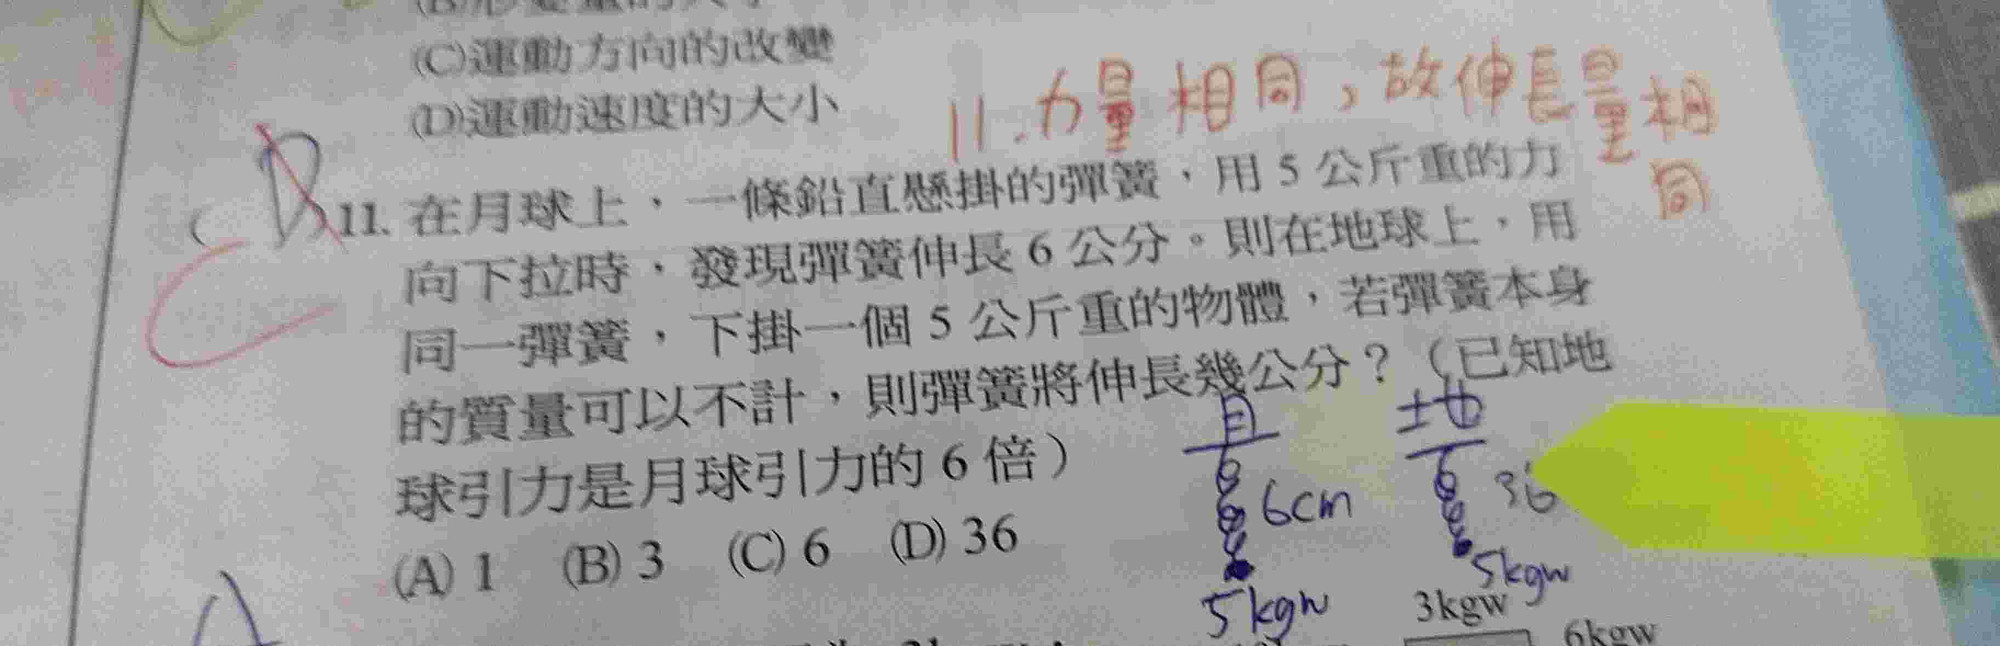 (C)運動方向的改變
(D)運動速度的大小
11.力量相同,故伸長量相同
C
11. 在月球上,一條鉛直懸掛的彈簧,用 5 公斤重的力
向下拉時,發現彈簧伸長 6 公分。則在地球上,用
同一彈簧,下掛一個 5 公斤重的物體,若彈簧本身
的質量可以不計,則彈簧將伸長幾公分?(已知地
球引力是月球引力的 6 倍)
(A) 1 (B) 3 (C) 6 (D) 36
月
6cm
5kgw
地
36
5kgw
3kgw
6kgw